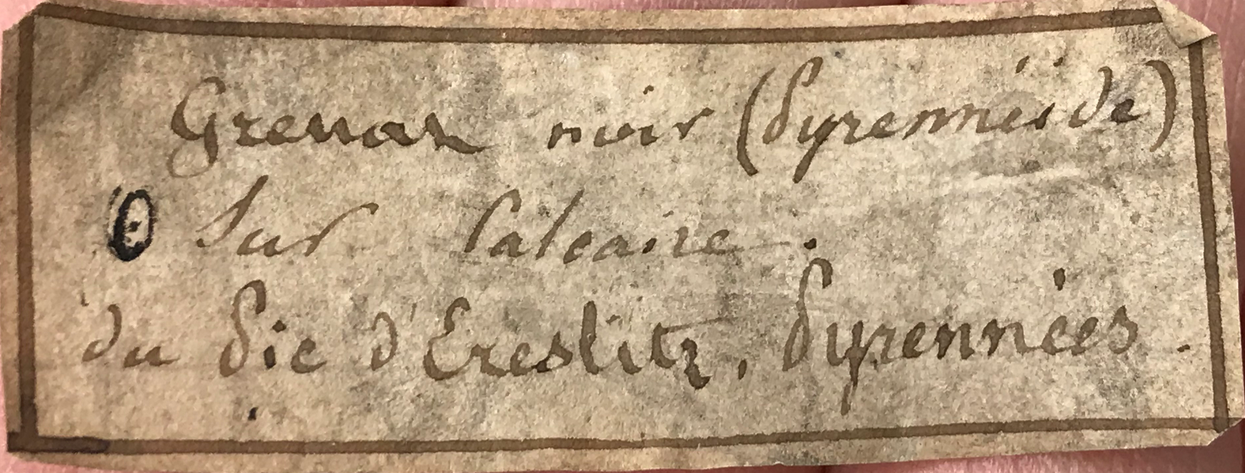 Grenat noir (Pyrennéïde)
0 Sur Calcaire.
du Pic d'Ereslitz, Pyrennées.